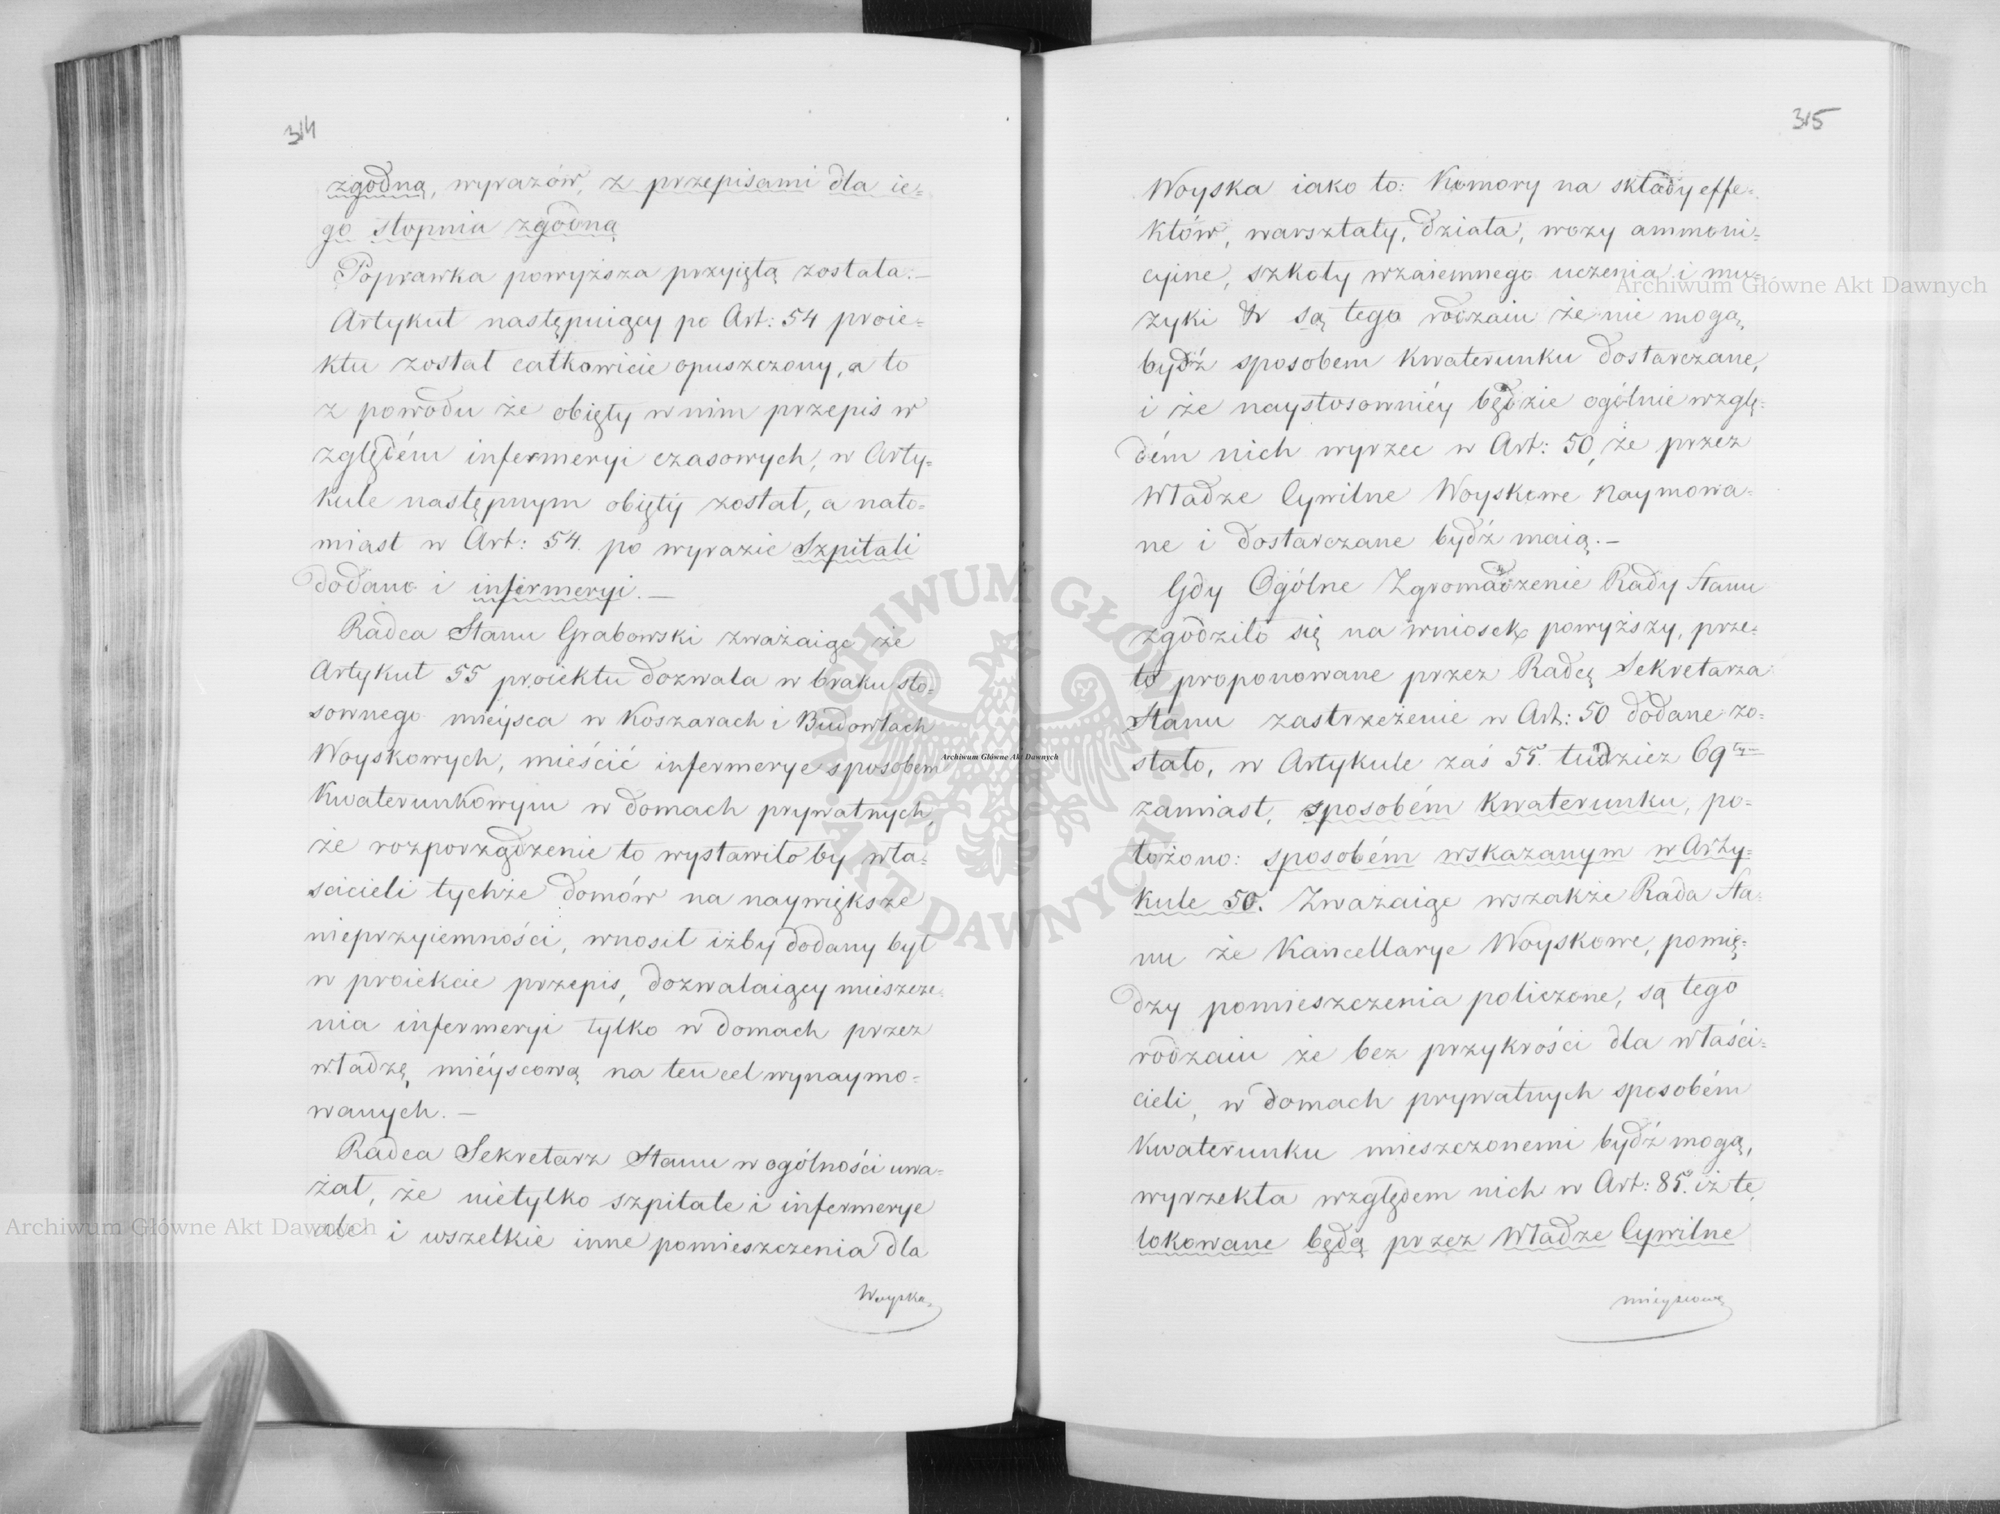 314
zgodną, wyrazów, z przepisami dla ie-
go stopnia zgodną
Poprawka powyższa przyiętą została.—
Artykuł następuiący po Art: 54 proie-
ktu został całkowicie opuszczony, a to
z powodu że obięty w nim przepis w
zględém infermeryi czasowych, w Arty-
kule następnym obięty został, a nato-
miast w Art: 54. po wyrazie Szpitali
dodano i infermeryi.—
Radca Stanu Grabowski zważaiąc że
Artykuł 55 proiektu dozwala w braku sto-
sownego mieysca w Koszarach i Budowlach
Woyskowych, mieścić infermerye sposobem
Kwaterunkowym w domach prywatnych,
że rozporządzenie to wystawiłoby wła-
ścicieli tychże domów na naywiększe
nieprzyiemności, wnosił iżby dodany był
w proiekcie przepis, dozwalaiący mieszcze-
nia infermeryi tylko w domach przez
władzę mieyscową na ten cel wynaymo-
wanych.—
Radca Sekretarz Stanu w ogólności uwa-
żał, że nietylko szpitale i infermerye
ale i wszelkie inne pomieszczenia dla
Woyska
315
Woyska iako to: Komory na składy effe-
któw, warsztaty, działa, wozy ammoni-
cyine, szkoły wzaiemnego uczenia i mu-
zyki & są tego rodzaiu że nie mogą
bydź sposobem Kwaterunku dostarczane,
i że naystosowniéy będzie ogólnie wzglę-
dém nich wyrzec w Art: 50, że przez
Władze Cywilne Woyskowe naymowa-
ne i dostarczane bydź maią.—
Gdy Ogólne Zgromadzenie Rady Stanu
zgodziło się na wniosek powyższy, prze-
to proponowane przez Radcę Sekretarza
Stanu zastrzeżenie w Art: 50 dodane zo-
stało, w Artykule zaś 55. tudzież 69tym
zamiast, sposobém Kwaterunku, po-
łożono: sposobém wskazanym w Arty-
kule 50. Zważaiąc wszakże Rada Sta-
nu że Kancellarye Woyskowe, pomię-
dzy pomieszczenia policzone, są tego
rodzaiu że bez przykrości dla właści-
cieli, w domach prywatnych sposobém
Kwaterunku mieszczonemi bydź mogą,
wyrzekła względem nich w Art: 85. iż te
lokowane będą przez Władze Cywilne
mieyscowe
Archiwum Główne Akt Dawnych
Archiwum Główne Akt Dawnych
Archiwum Główne Akt Dawnych
ARCHIWUM GŁÓWNE AKT DAWNYCH